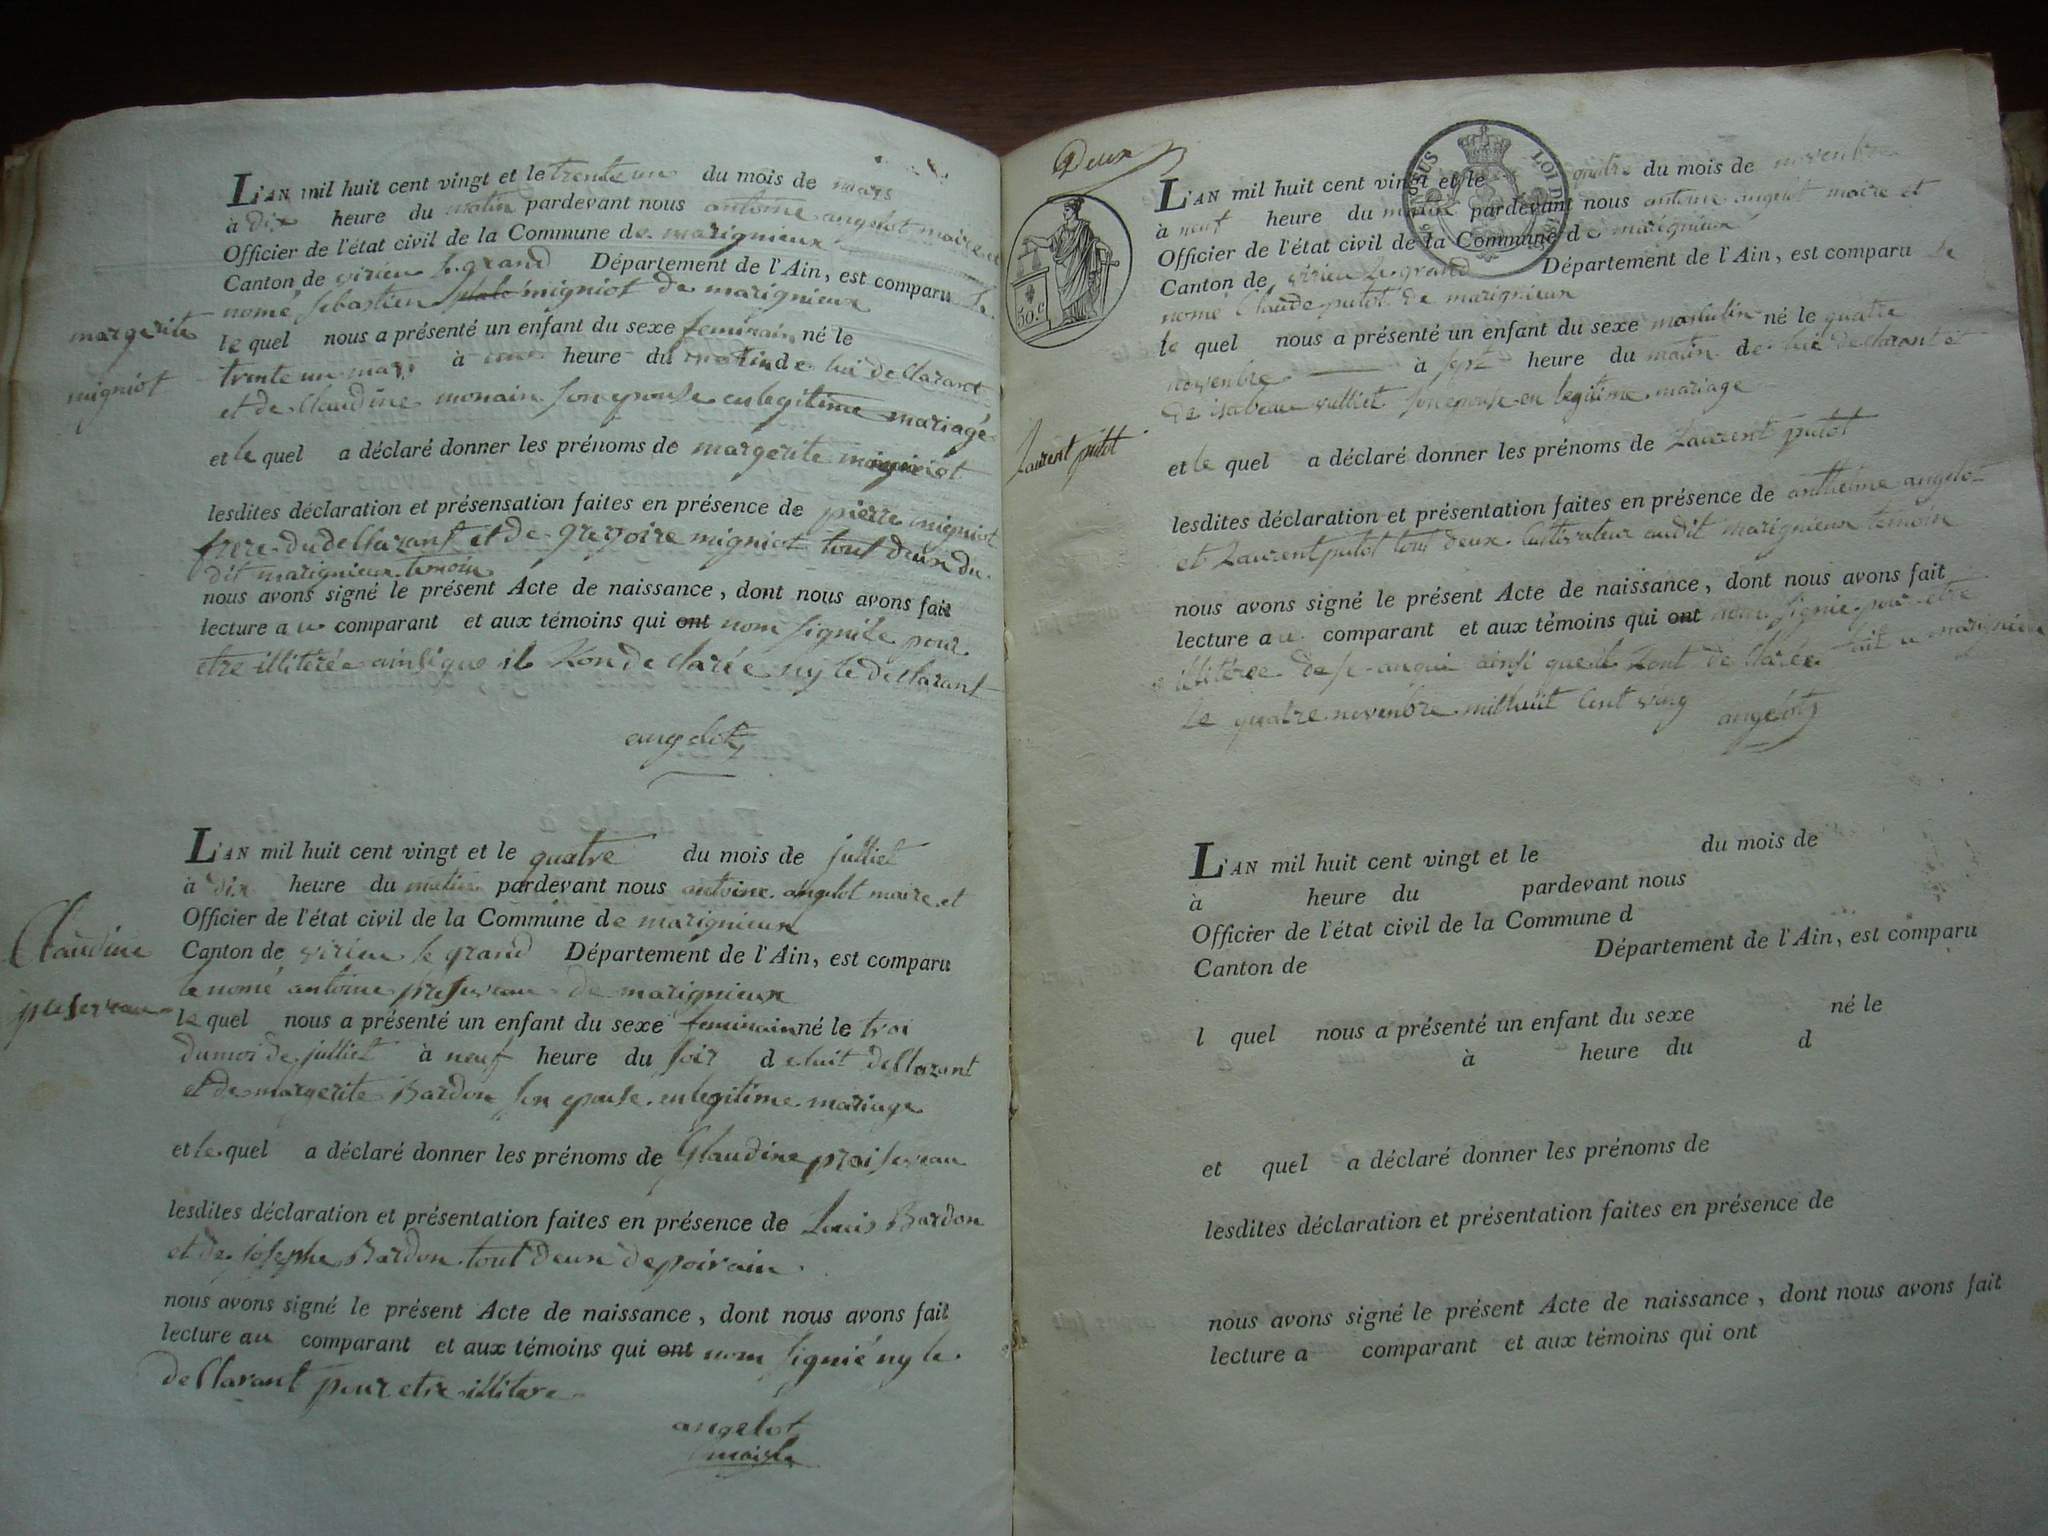 L'AN mil huit cent vingt et le trente un du mois de mars
à dix heure du matin pardevant nous antoine angelot maire et
Officier de l'état civil de la Commune de marignieux
Canton de virieu le grand Département de l'Ain, est comparu le
nomé sebastien migniot de marignieux
margerite
le quel nous a présenté un enfant du sexe feminain né le
trente un mars à heure du matin de lui dellarant
migniot
et de Claudine monain son epouse en legitime mariage
et le quel a déclaré donner les prénoms de margerite migniot
lesdites déclaration et présensation faites en présence de pierre migniot
frere du dellarant et de gregoire migniot tout deux du
dit marignieux temoin
nous avons signé le présent Acte de naissance, dont nous avons fait
lecture au comparant et aux témoins qui ont nom signié pour
etre illiterée ainsi que il lon declarée ny le dellarant
angelot
L'AN mil huit cent vingt et le quatre du mois de julliet
à dix heure du matin pardevant nous antoine angelot maire et
Officier de l'état civil de la Commune de marignieux
Claudine
Canton de virieu le grand Département de l'Ain, est comparu
le nomé antoine preserveau de marignieux
preserveau
le quel nous a présenté un enfant du sexe feminain né le troi
du moi de julliet à neuf heure du soir de luit dellarant
et de margerite Bardon son epouse en legitime mariage
et le quel a déclaré donner les prénoms de Glaudine praiserveau
lesdites déclaration et présentation faites en présence de Louis Bardon
et de josephe Bardon tout deux de poirain
nous avons signé le présent Acte de naissance, dont nous avons fait
lecture au comparant et aux témoins qui ont nom signié ny le
dellarant pour etre illitere
angelot
maire
Deux
L'AN mil huit cent vingt et le quatre du mois de novenbre
à neuf heure du matin pardevant nous antoine angelot maire et
Officier de l'état civil de la Commune de marignieux
Canton de virieu le grand Département de l'Ain, est comparu le
LOI DE
50.c
nomé Claude putot de marignieux
le quel nous a présenté un enfant du sexe masculin né le quatre
novenbre à sept heure du matin de lui dellarant et
de isabeau vulliet son epouse en legitime mariage
Laurent putot
et le quel a déclaré donner les prénoms de Laurent putot
lesdites déclaration et présentation faites en présence de anthelme angelot
et Laurent putot tout deux cultivateur audit marignieux temoin
nous avons signé le présent Acte de naissance, dont nous avons fait
lecture au comparant et aux témoins qui ont nom signié pour etre
illiterée de ainsi que il lont declarée fait a marignieux
le quatre novenbre mil huit cent ving
angelot
L'AN mil huit cent vingt et le du mois de
à heure du pardevant nous
Officier de l'état civil de la Commune d
Canton de Département de l'Ain, est comparu
l quel nous a présenté un enfant du sexe né le
à heure du d
et quel a déclaré donner les prénoms de
lesdites déclaration et présentation faites en présence de
nous avons signé le présent Acte de naissance, dont nous avons fait
lecture a comparant et aux témoins qui ont